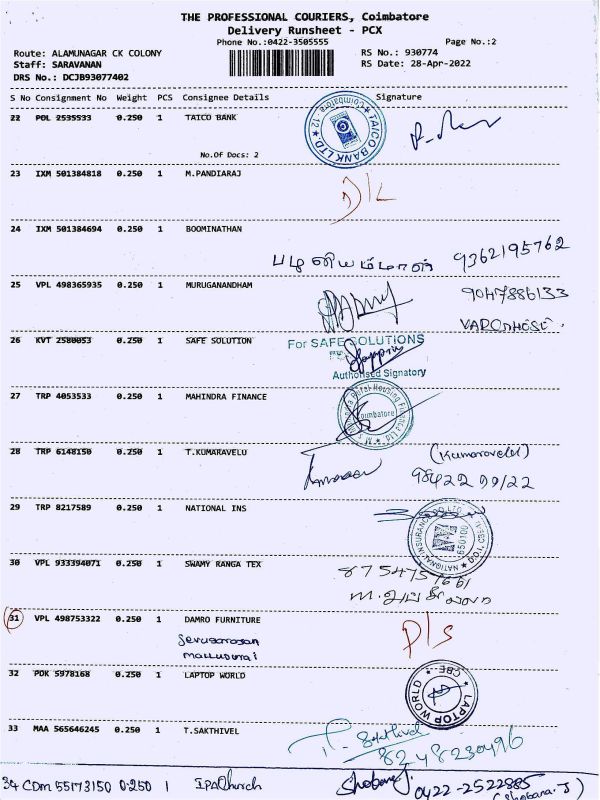 THE PROFESSIONAL COURIERS, Coimbatore
Delivery Runsheet - PCX
Phone No.:0422-3505555 Page No.:2
Route: ALAMUNAGAR CK COLONY RS No.: 930774
Staff: SARAVANAN RS Date: 28-Apr-2022
DRS No.: DCJB93077402
S No Consignment No Weight PCS Consignee Details Signature
22 POL 2535533 0.250 1 TAICO BANK
TAICO BANK LTD. Coimbatore - 12
No.Of Docs: 2
23 IXM 501384818 0.250 1 M.PANDIARAJ
D/L
24 IXM 501384694 0.250 1 BOOMINATHAN
9362195762
25 VPL 498365935 0.250 1 MURUGANANDHAM
9047886133
26 KVT 2580053 0.250 1 SAFE SOLUTION
For SAFE SOLUTIONS
Authorised Signatory
27 TRP 4053533 0.250 1 MAHINDRA FINANCE
Rural Housing Finance Ltd Coimbatore
28 TRP 6148150 0.250 1 T.KUMARAVELU
(Kumaravelu)
98422 99122
29 TRP 8217589 0.250 1 NATIONAL INS
NATIONAL INSURANCE CO LTD
30 VPL 933394071 0.250 1 SWAMY RANGA TEX
8754757661
31 VPL 498753322 0.250 1 DAMRO FURNITURE
D/S
32 PDK 5978168 0.250 1 LAPTOP WORLD
LAPTOP WORLD CBE
33 MAA 565646245 0.250 1 T.SAKTHIVEL
T. Sakthivel
8248230496
34 CDM 55173150 0.250 1 IPA Church Shobana.J 0422-2522885
(Shobana.J)